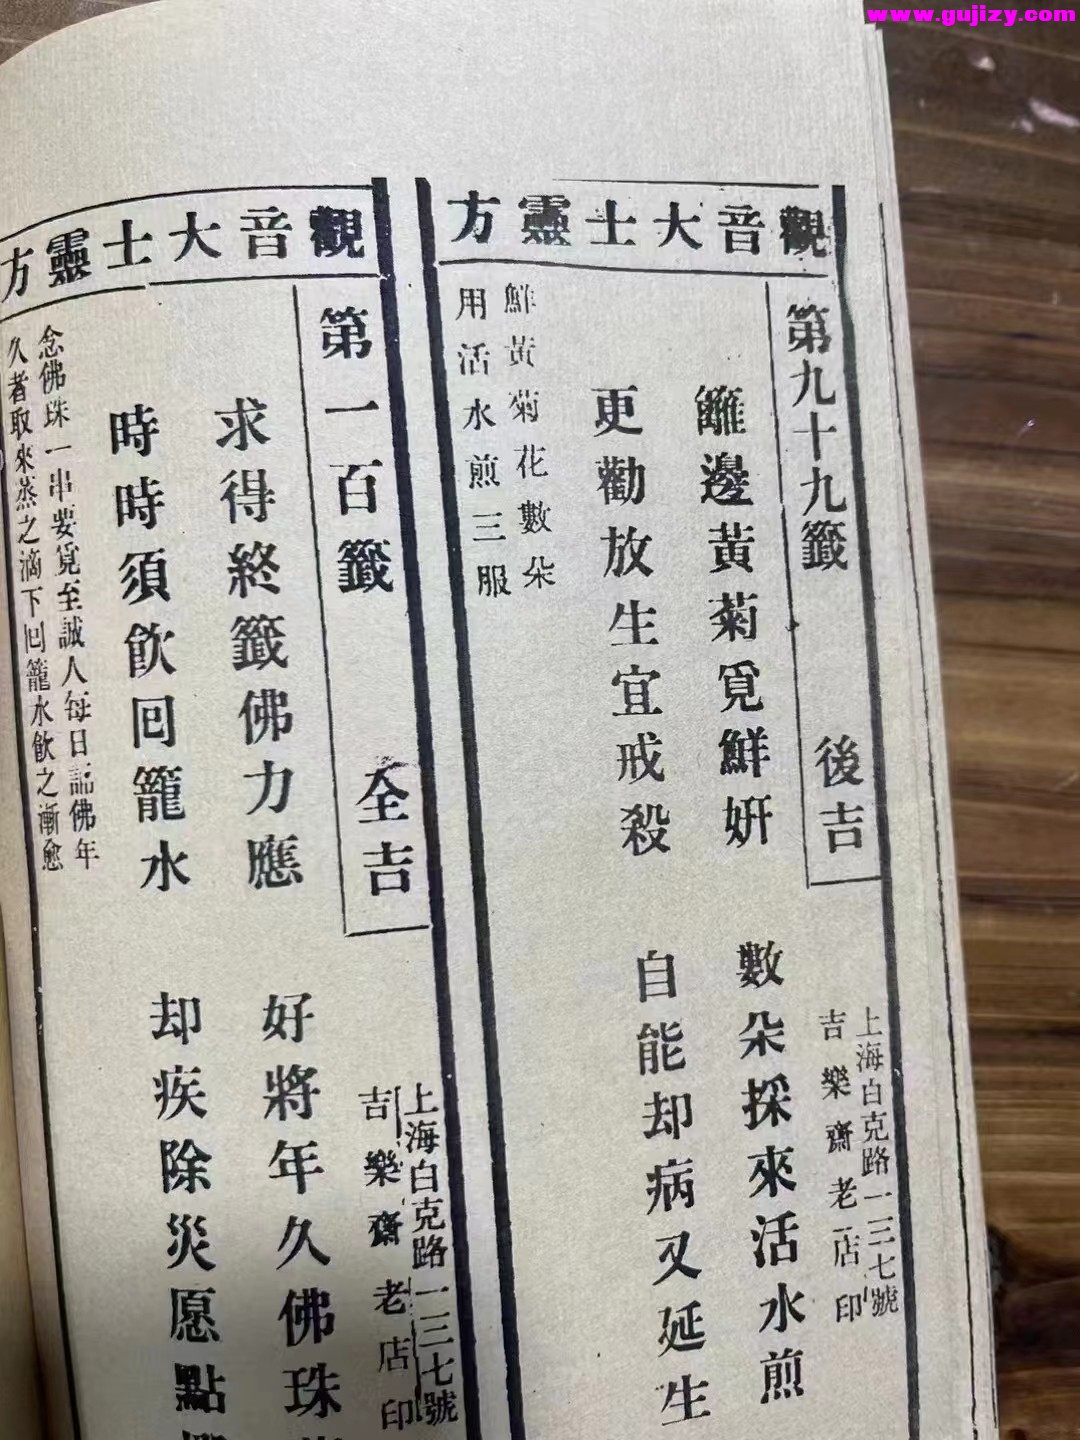 www.gujizy.com
觀音大士靈方
第九十九籤 後吉
上海白克路一三七號
吉樂齋老店印
籬邊黃菊覓鮮妍 數朵採來活水煎
更勸放生宜戒殺 自能却病又延生
鮮黃菊花數朵
用活水煎三服
觀音大士靈方
第一百籤 全吉
上海白克路一三七號
吉樂齋老店印
求得終籤佛力應 好將年久佛珠
時時須飲回籠水 却疾除災愿點
念佛珠一串要覓至誠人每日記佛年
久者取來蒸之滴下回籠水飲之漸愈